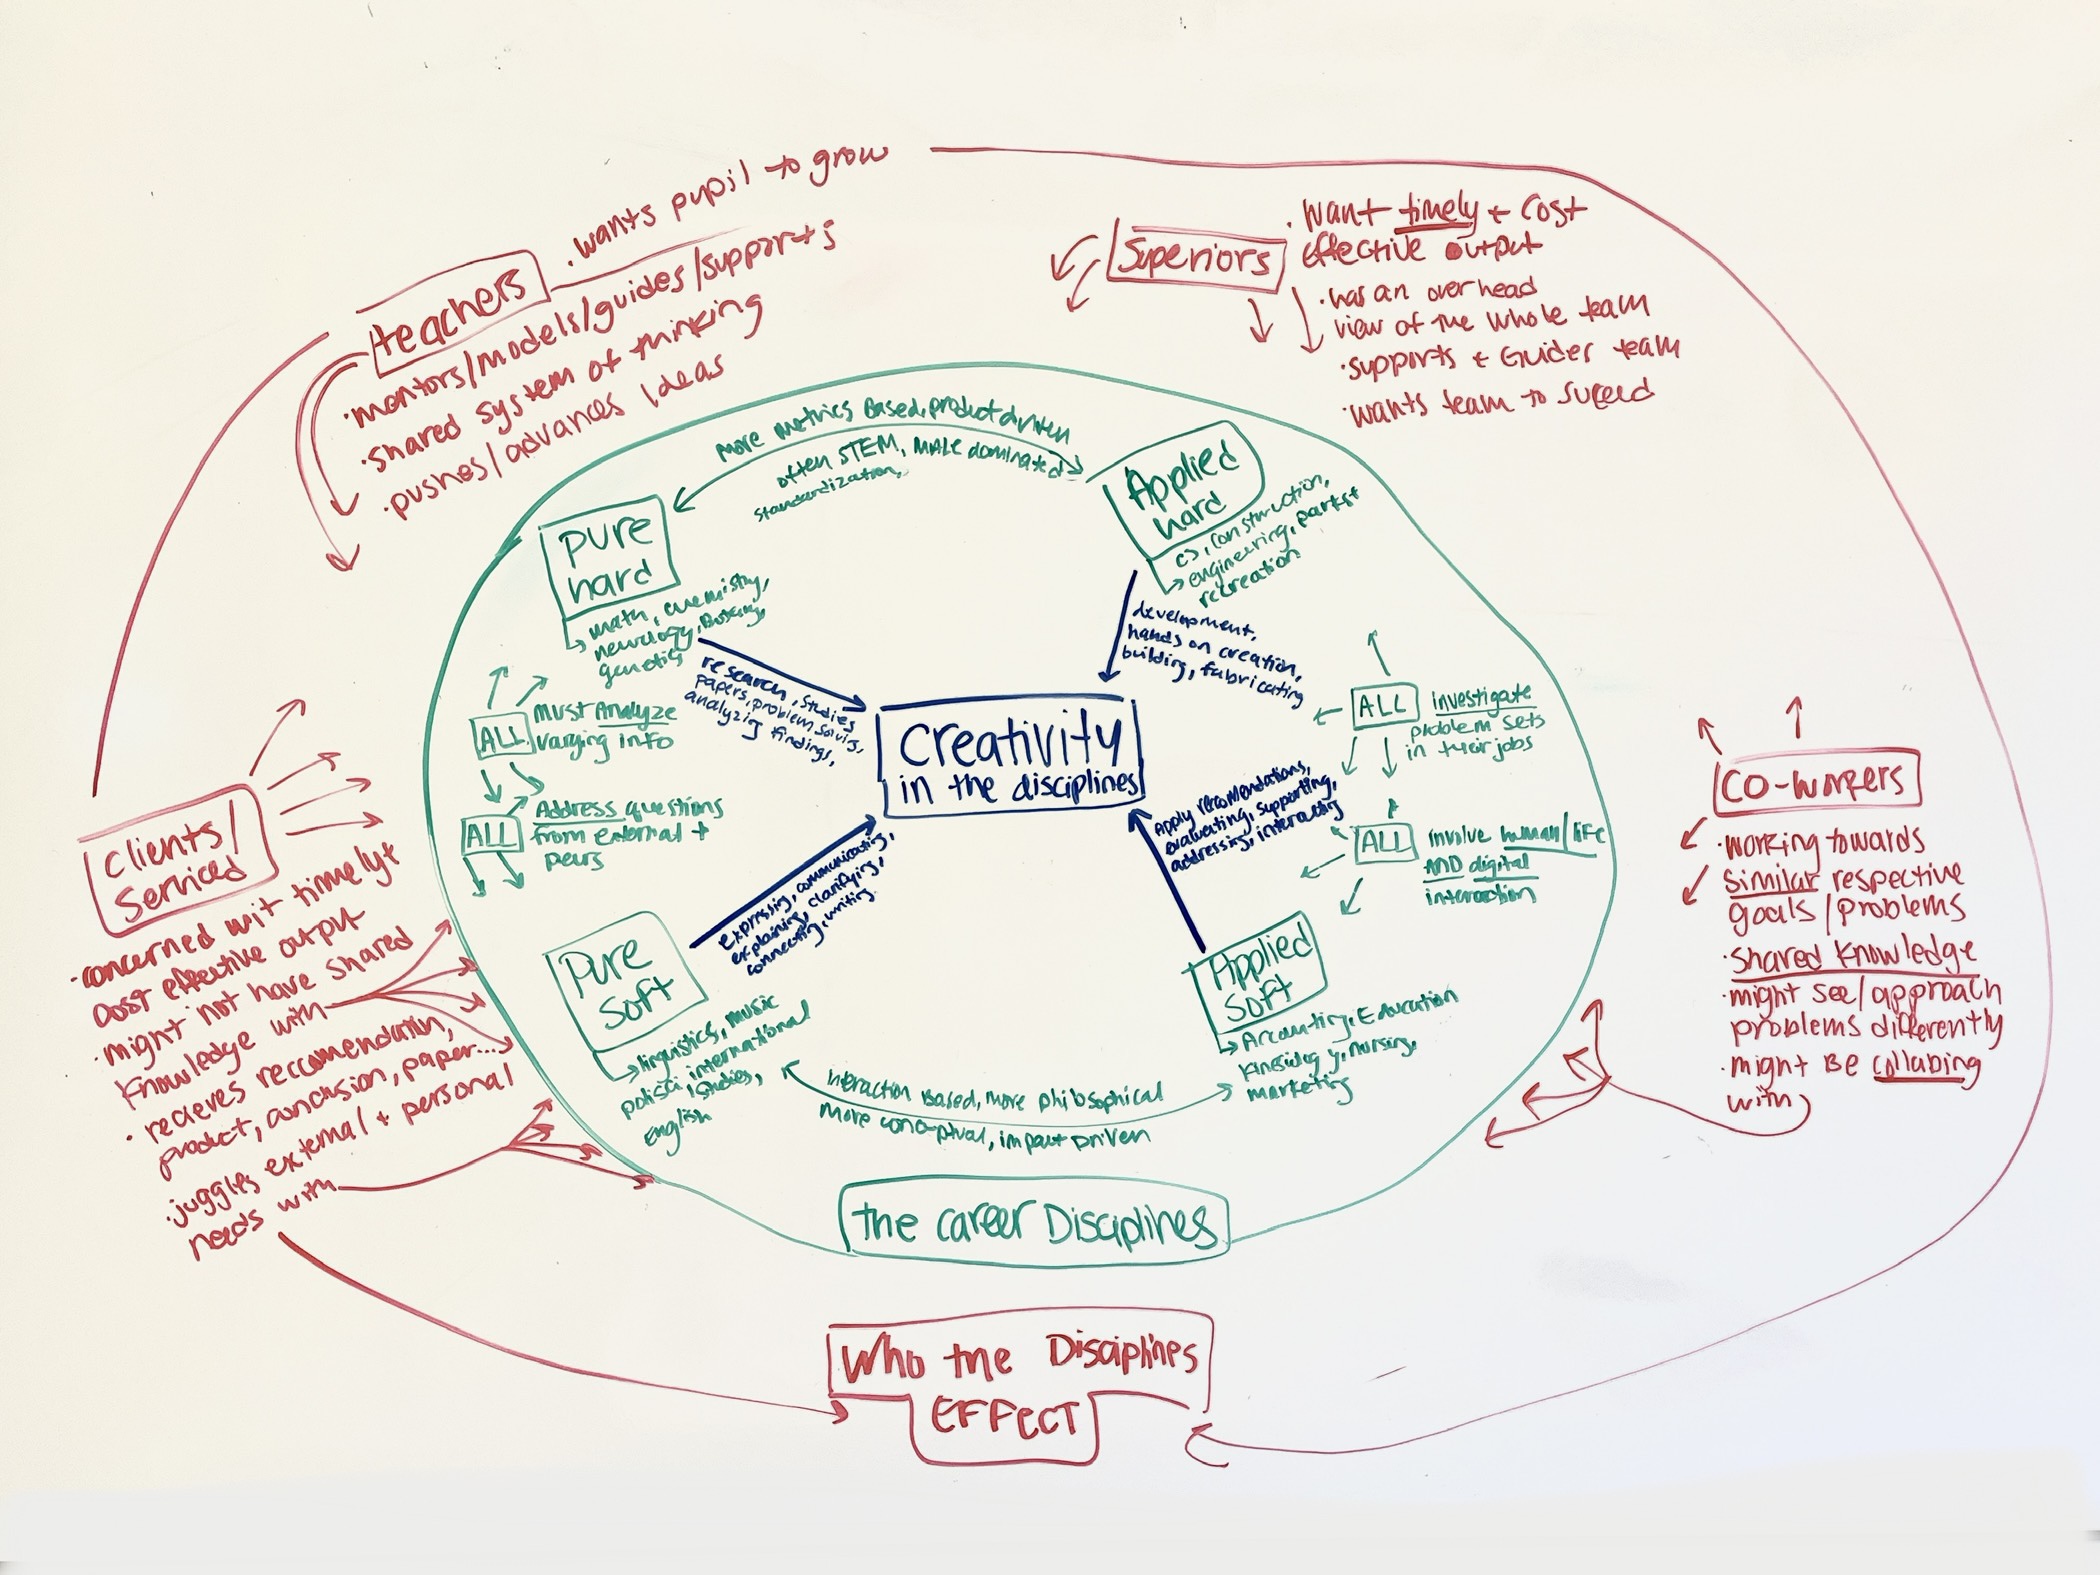 .wants pupil to grow
teachers
·mentors/models/guides/supports
·shared system of thinking
·pushes/advances ideas
Superiors
. Want timely + cost
effective output
·has an overhead
view of the whole team
·supports + Guider team
·wants team to succeed
more metrics Based, product driven
often STEM, MALE dominated
standardization,
pure
hard
math, chemistry,
neurology,
genetics
Applied
hard
cs, construction,
engineering, parks+
recreation
research, studies
papers, problem solving,
analyzing findings,
development,
hands on creation,
building, fabricating
ALL
Must Analyze
varying info
ALL
Address questions
from external +
peers
Creativity
in the disciplines
ALL
investigate
problem sets
in their jobs
ALL
involve human/life
AND digital
interaction
expressing, communicating,
explaining, clarifying,
connecting, writing
Apply recomendations,
evaluating, supporting,
addressing, interacting
Pure
Soft
linguistics, music
polisci international
studies,
english
Applied
Soft
Accounting, Education
Kinesiology, nursing,
marketing
interaction Based, more philosophical
more conceptual, impact driven
the career Disciplines
clients/
serviced
·concerned wit timely+
cost effective output
·might not have shared
knowledge with
·recieves reccomendation,
product, conclusion, paper...
·juggles external + personal
needs with
co-workers
·working towards
similar respective
goals/problems
·shared knowledge
·might see/approach
problems differently
·might Be collabing
with
Who the Disciplines
EFFECT